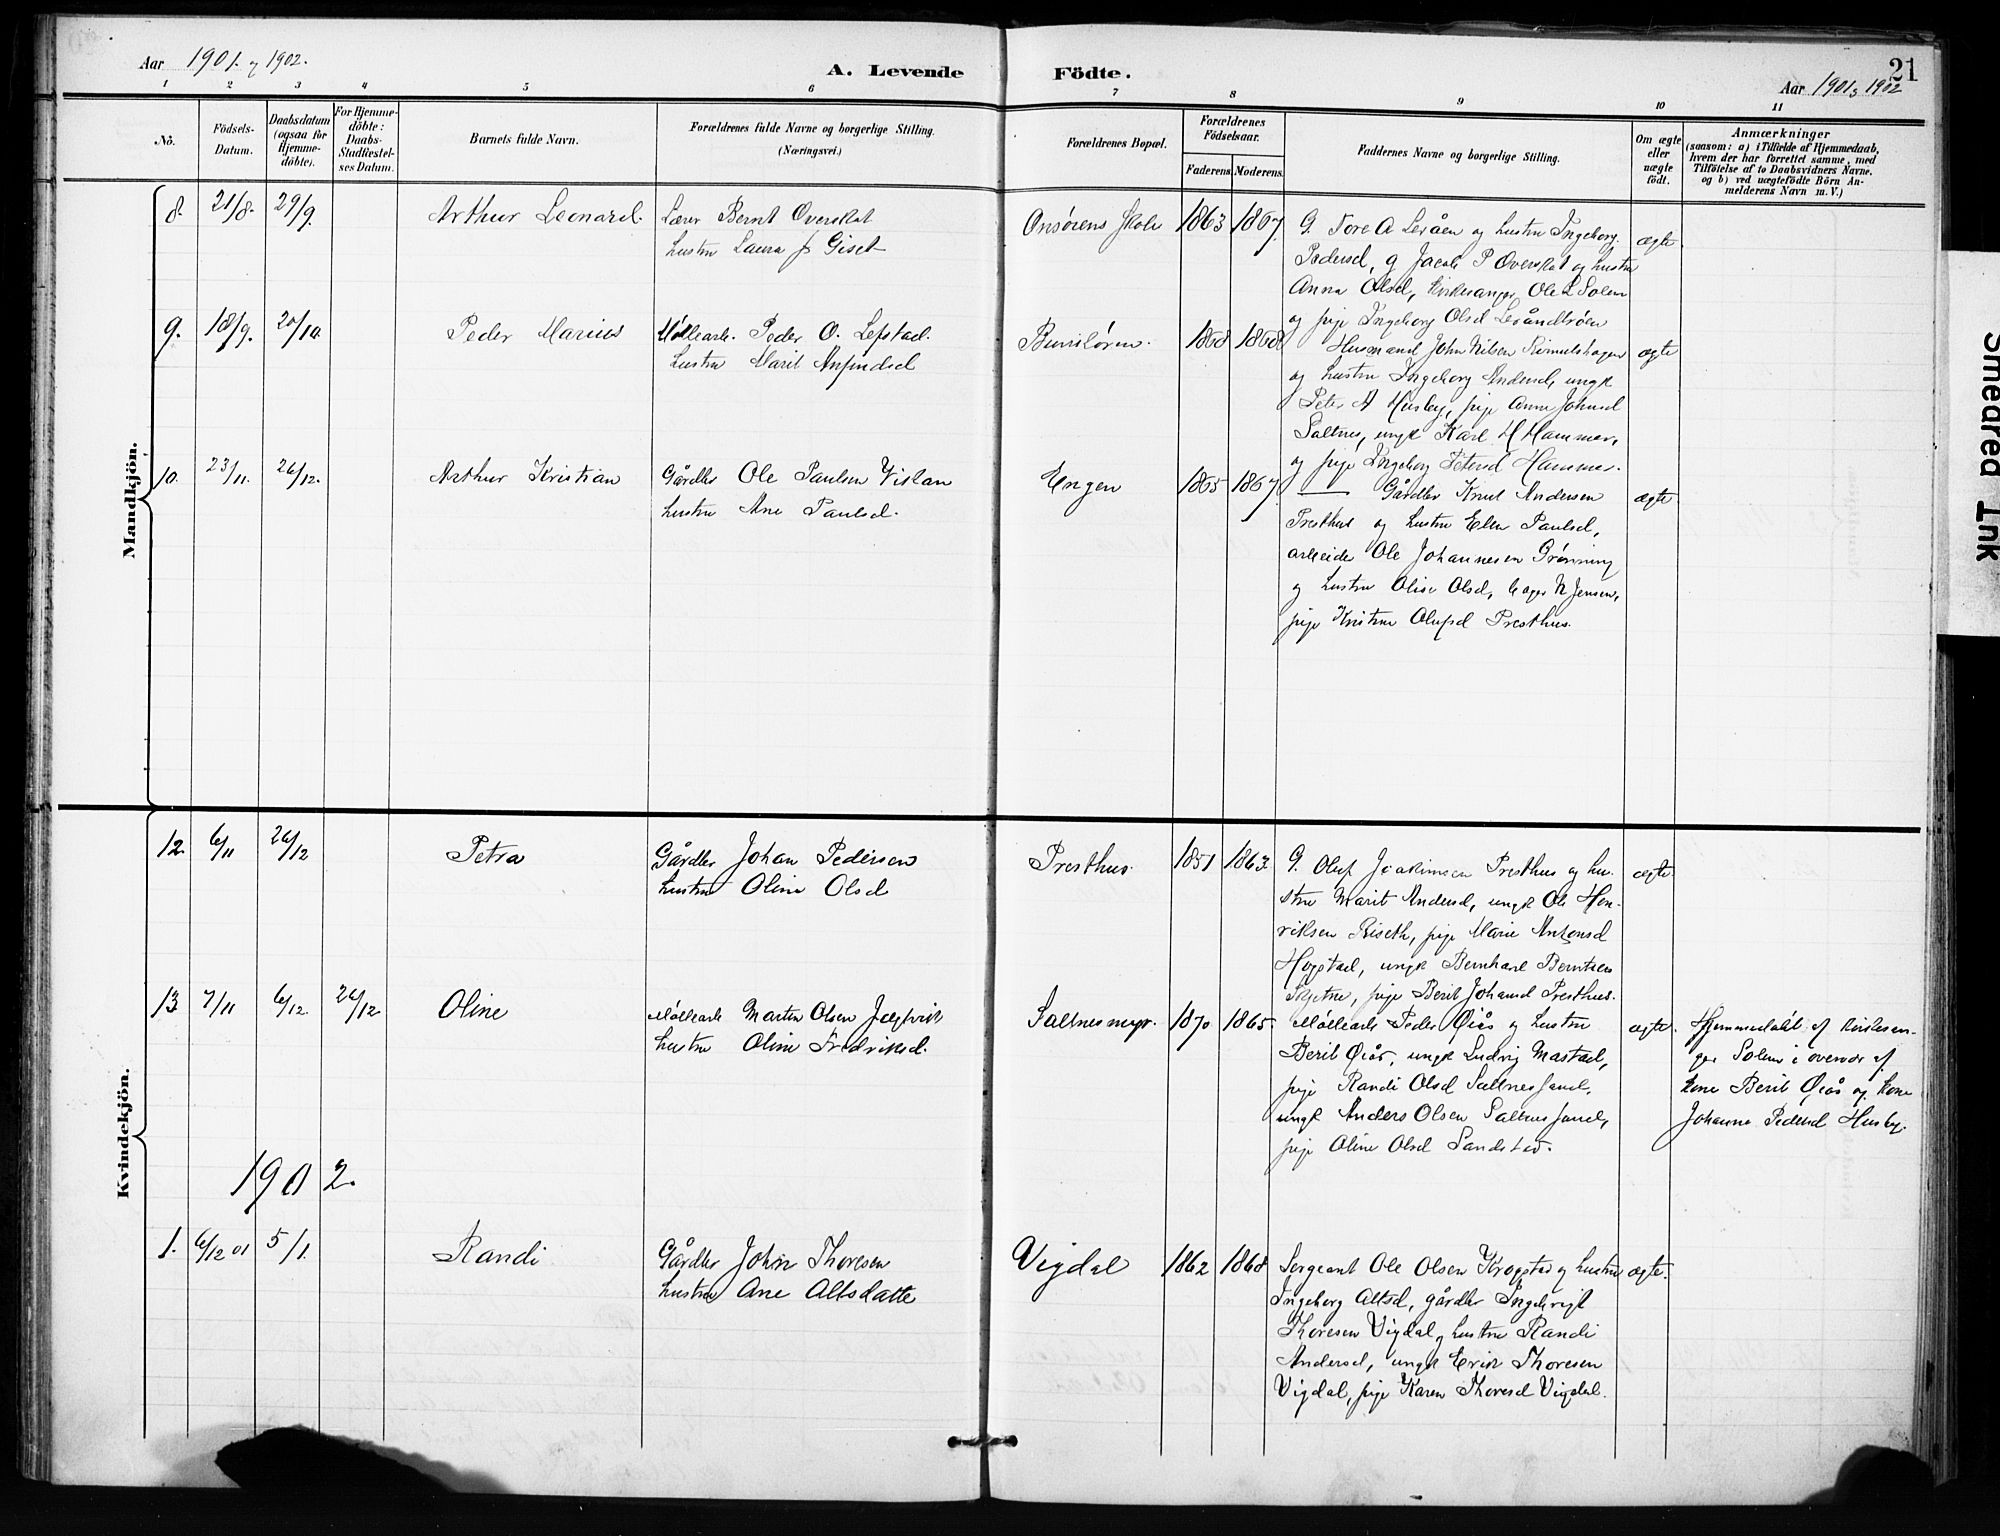 Aar 1901. og 1902.
A. Levende Födte.
21
Aar 1901 & 1902
1 2 3 4 5 6 7 8 9 10 11
No.
Födsels-
Datum.
Daabsdatum
(ogsaa for
Hjemme-
döbte).
For Hjemme-
döbte:
Daabs-
Stadfæstel-
ses Datum.
Barnets fulde Navn.
Forældrenes fulde Navne og borgerlige Stilling.
(Næringsvei.)
Forældrenes Bopæl.
Forældrenes
Födselsaar.
Faderens Moderens.
Faddernes Navne og borgerlige Stilling.
Om ægte
eller
uægte
født.
Anmærkninger
(saasom: a) i Tilfælde af Hjemmedaab,
hvem der har forrettet samme, med
Tilföielse af to Daabsvidners Navne.
og b) ved uægtefödte Börn An-
melderens Navn m. V.)
Mandkjön.
8. 21/8. 29/9. Arthur Leonard.
Lærer Bernt Overskot
hustru Laura J Giset
Onsørens Skole 1863 1867.
G. Tore A Leråen og hustru Ingeborg
Pedersd, g Jacob P Overskot og hustru
Anna Olsd, kirkesanger Ole L Solem
og pige Ingeborg Olsd Leråndtrøen
ægte
9. 18/9. 20/10. Peder Marius
Møllearb. Peder O. Lefstad.
hustru Marit Anfindsd
1868 1868
Husmand John Nilsen Rimulshagen
og hustru Ingeborg Andersd, ungk
Peter A Husby, pige Anne Johnsd
Saltnes, ungk Karl H Hammer,
og pige Ingeborg Petersd Hammer.
ægte
10. 23/11. 26/12. Arthur Kristian
Gårdbr Ole Paulsen Vislan
hustru Ane Paulsd.
Engen 1865 1867.
Gårdbr Knut Andersen
Presthus og hustru Elen Paulsd,
arbeider Ole Johannesen Grønning
og hustru Olise Olsd, bager N Jensen,
pige Kristine Olufsd Presthus.
ægte
Kvindekjön.
12. 6/11 26/12 Petra
Gårdbr Johan Pedersen
hustru Oline Olsd
Presthus. 1851 1863.
G. Oluf Joakimsen Presthus og hu-
stru Marit Andersd, ungk Ole Hen-
riksen Riseth, pige Marie Antonsd
Hogstad, ungk Bernhard Berntsen
Skjetne, pige Berit Johansd Presthus.
ægte.
13 7/11 6/12. 26/12 Oline
Møllearb Martin Olsen Jægtvik
hustru Oline Fredriksd.
Saltnesmyr. 1870 1865.
Møllearb Peder Øiås og hustru
Berit Øiås, ungk Ludvig Mastad,
pige Randi Olsd Saltnessand,
ungk Anders Olsen Saltnessand,
pige Oline Olsd Sandstad.
ægte.
Hjemmedøbt af kirkesan-
ger Solem i overvær af
kone Berit Øiås og kone
Johanna Pedersd Husby.
1902.
1. 6/12 01 5/1. Randi
Gårdbr John Thoresen
hustru Ane Altsdatte
Vigdal 1862 1868
Sergeant Ole Olsen Krogstad og hustru
Ingeborg Altsd, gårdbr Ingebrigt
Thoresen Vigdal og hustru Randi
Andersd, ungk Erik Thoresen
Vigdal, pige Karen Thoresd Vigdal.
ægte.
Smeared Ink